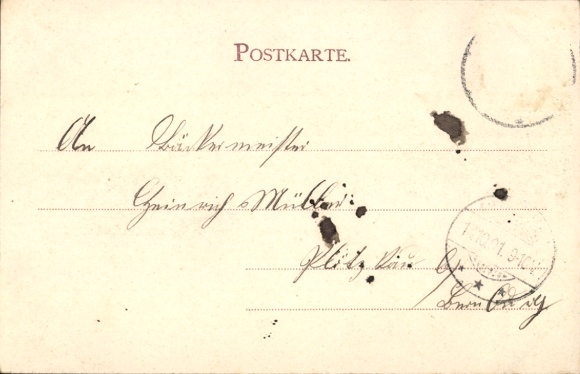 POSTKARTE.
An Bäckermeister
Heinrich Müller
Plötzkau b/
Bernburg
10.01. 9-10V.